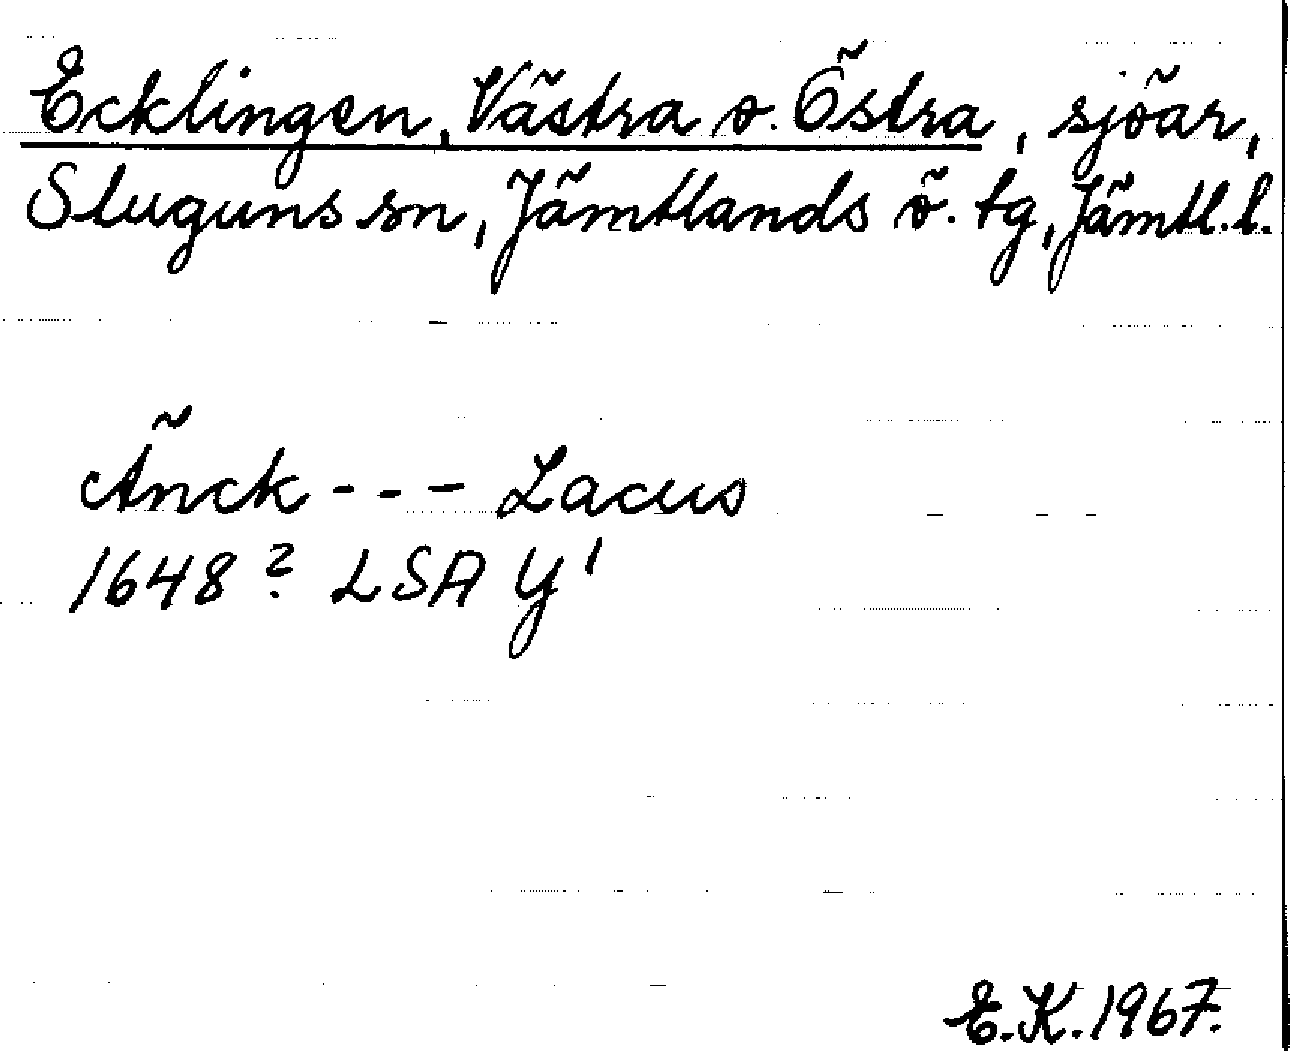 Ecklingen, Västra o. Östra, sjöar,
Stuguns sn, Jämtlands ö. tg, Jämtl. l.
Änck - - - Lacus
1648? LSA Y 1
E.K. 1967.